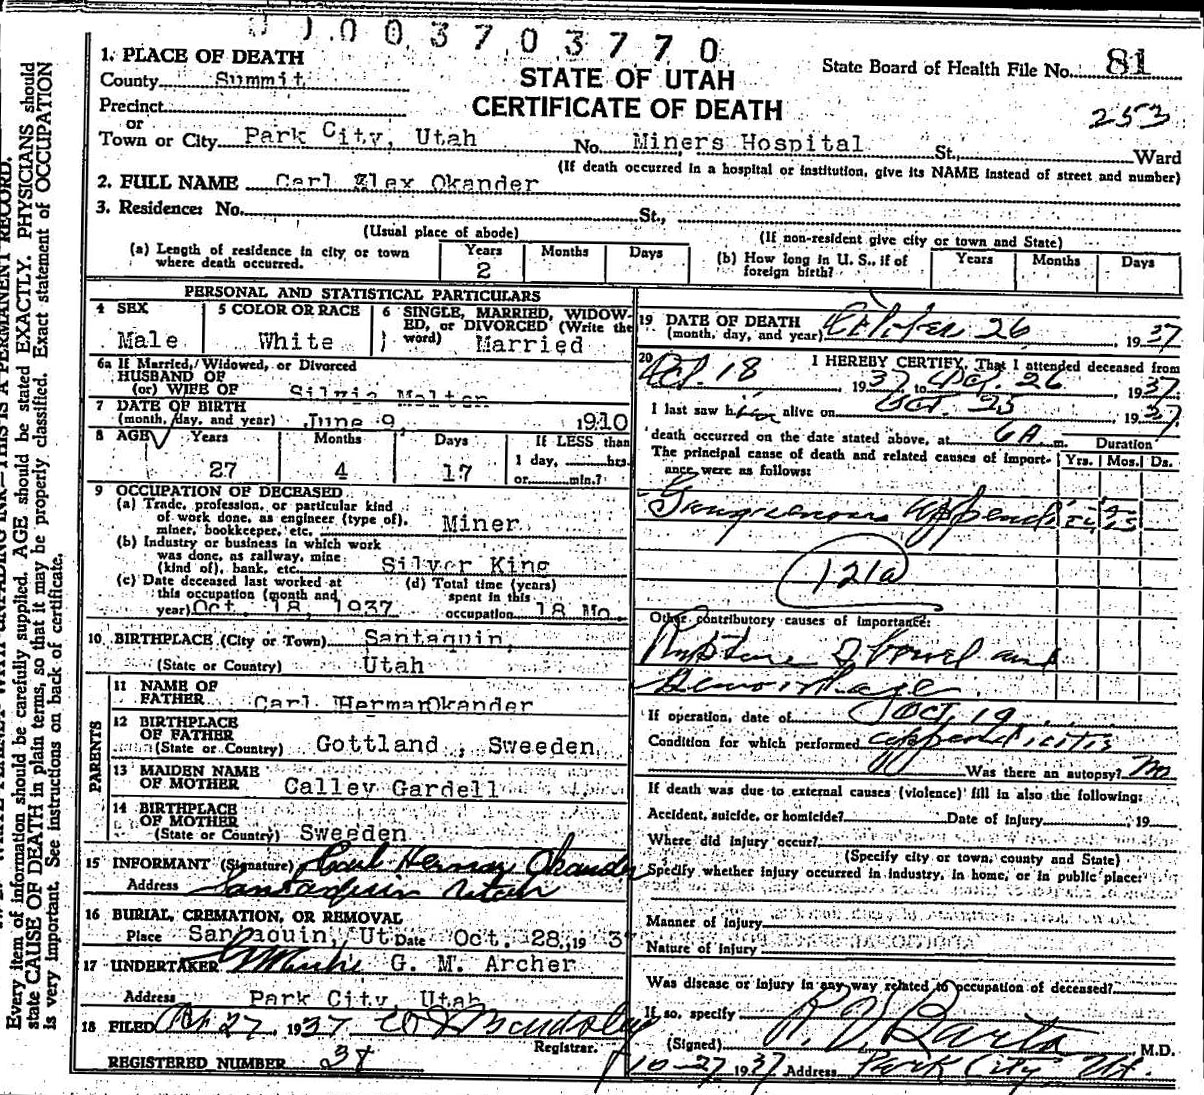 0 0 3 7 0 3 7 7 0
1. PLACE OF DEATH
County Summit
STATE OF UTAH
CERTIFICATE OF DEATH
State Board of Health File No. 81
Precinct
253
or
Town or City Park City, Utah No. Miners Hospital St., Ward
(If death occurred in a hospital or institution, give its NAME instead of street and number)
2. FULL NAME Carl Elex Okander
3. Residence: No. St.,
(Usual place of abode) (If non-resident give city or town and State)
(a) Length of residence in city or town where death occurred. Years 2 Months Days
(b) How long in U. S., if of foreign birth? Years Months Days
PERSONAL AND STATISTICAL PARTICULARS
4 SEX Male
5 COLOR OR RACE White
6 SINGLE, MARRIED, WIDOWED, or DIVORCED (Write the word) Married
6a If Married, Widowed, or Divorced
HUSBAND OF
(or) WIFE OF Silvia Malten
7 DATE OF BIRTH
(month, day, and year) June 9, 1910
8 AGE Years 27 Months 4 Days 17 If LESS than 1 day, hrs. or min.?
9 OCCUPATION OF DECEASED
(a) Trade, profession, or particular kind of work done, as engineer (type of), miner, bookkeeper, etc. Miner
(b) Industry or business in which work was done, as railway, mine (kind of), bank, etc. Silver King
(c) Date deceased last worked at this occupation (month and year) Oct. 18, 1937
(d) Total time (years) spent in this occupation 18 Mo.
10 BIRTHPLACE (City or Town) Santaquin,
(State or Country) Utah
PARENTS
11 NAME OF FATHER Carl Herman Okander
12 BIRTHPLACE OF FATHER
(State or Country) Gottland, Sweeden
13 MAIDEN NAME OF MOTHER Calley Gardell
14 BIRTHPLACE OF MOTHER
(State or Country) Sweeden
15 INFORMANT (Signature) Carl Herman Okander
Address Santaquin Utah
16 BURIAL, CREMATION, OR REMOVAL
Place Santaquin, Ut Date Oct. 28, 1937
17 UNDERTAKER G. M. Archer
Address Park City, Utah
18 FILED Oct 27, 1937
Registrar.
REGISTERED NUMBER 38
19 DATE OF DEATH
(month, day, and year) October 26, 1937
20 I HEREBY CERTIFY, That I attended deceased from
Oct. 18 1937 to Oct. 26 1937
I last saw him alive on Oct. 25 1937
death occurred on the date stated above, at 6 A m. Duration
The principal cause of death and related causes of importance were as follows: Yrs. Mos. Ds.
Gangrenous Append
121a
Other contributory causes of importance:
Rupture of bowel and
Hemorrhage
If operation, date of Oct. 19
Condition for which performed appendicitis
Was there an autopsy? No
If death was due to external causes (violence) fill in also the following:
Accident, suicide, or homicide? Date of injury, 19
Where did injury occur?
(Specify city or town, county and State)
Specify whether injury occurred in industry, in home, or in public place:
Manner of injury
Nature of injury
Was disease or injury in any way related to occupation of deceased?
If so, specify
(Signed) R. V. Barta M.D.
10-27 1937 Address Park City Ut.
Every item of information should be carefully supplied. AGE should be stated EXACTLY. PHYSICIANS should
state CAUSE OF DEATH in plain terms, so that it may be properly classified. Exact statement of OCCUPATION
is very important. See instructions on back of certificate.